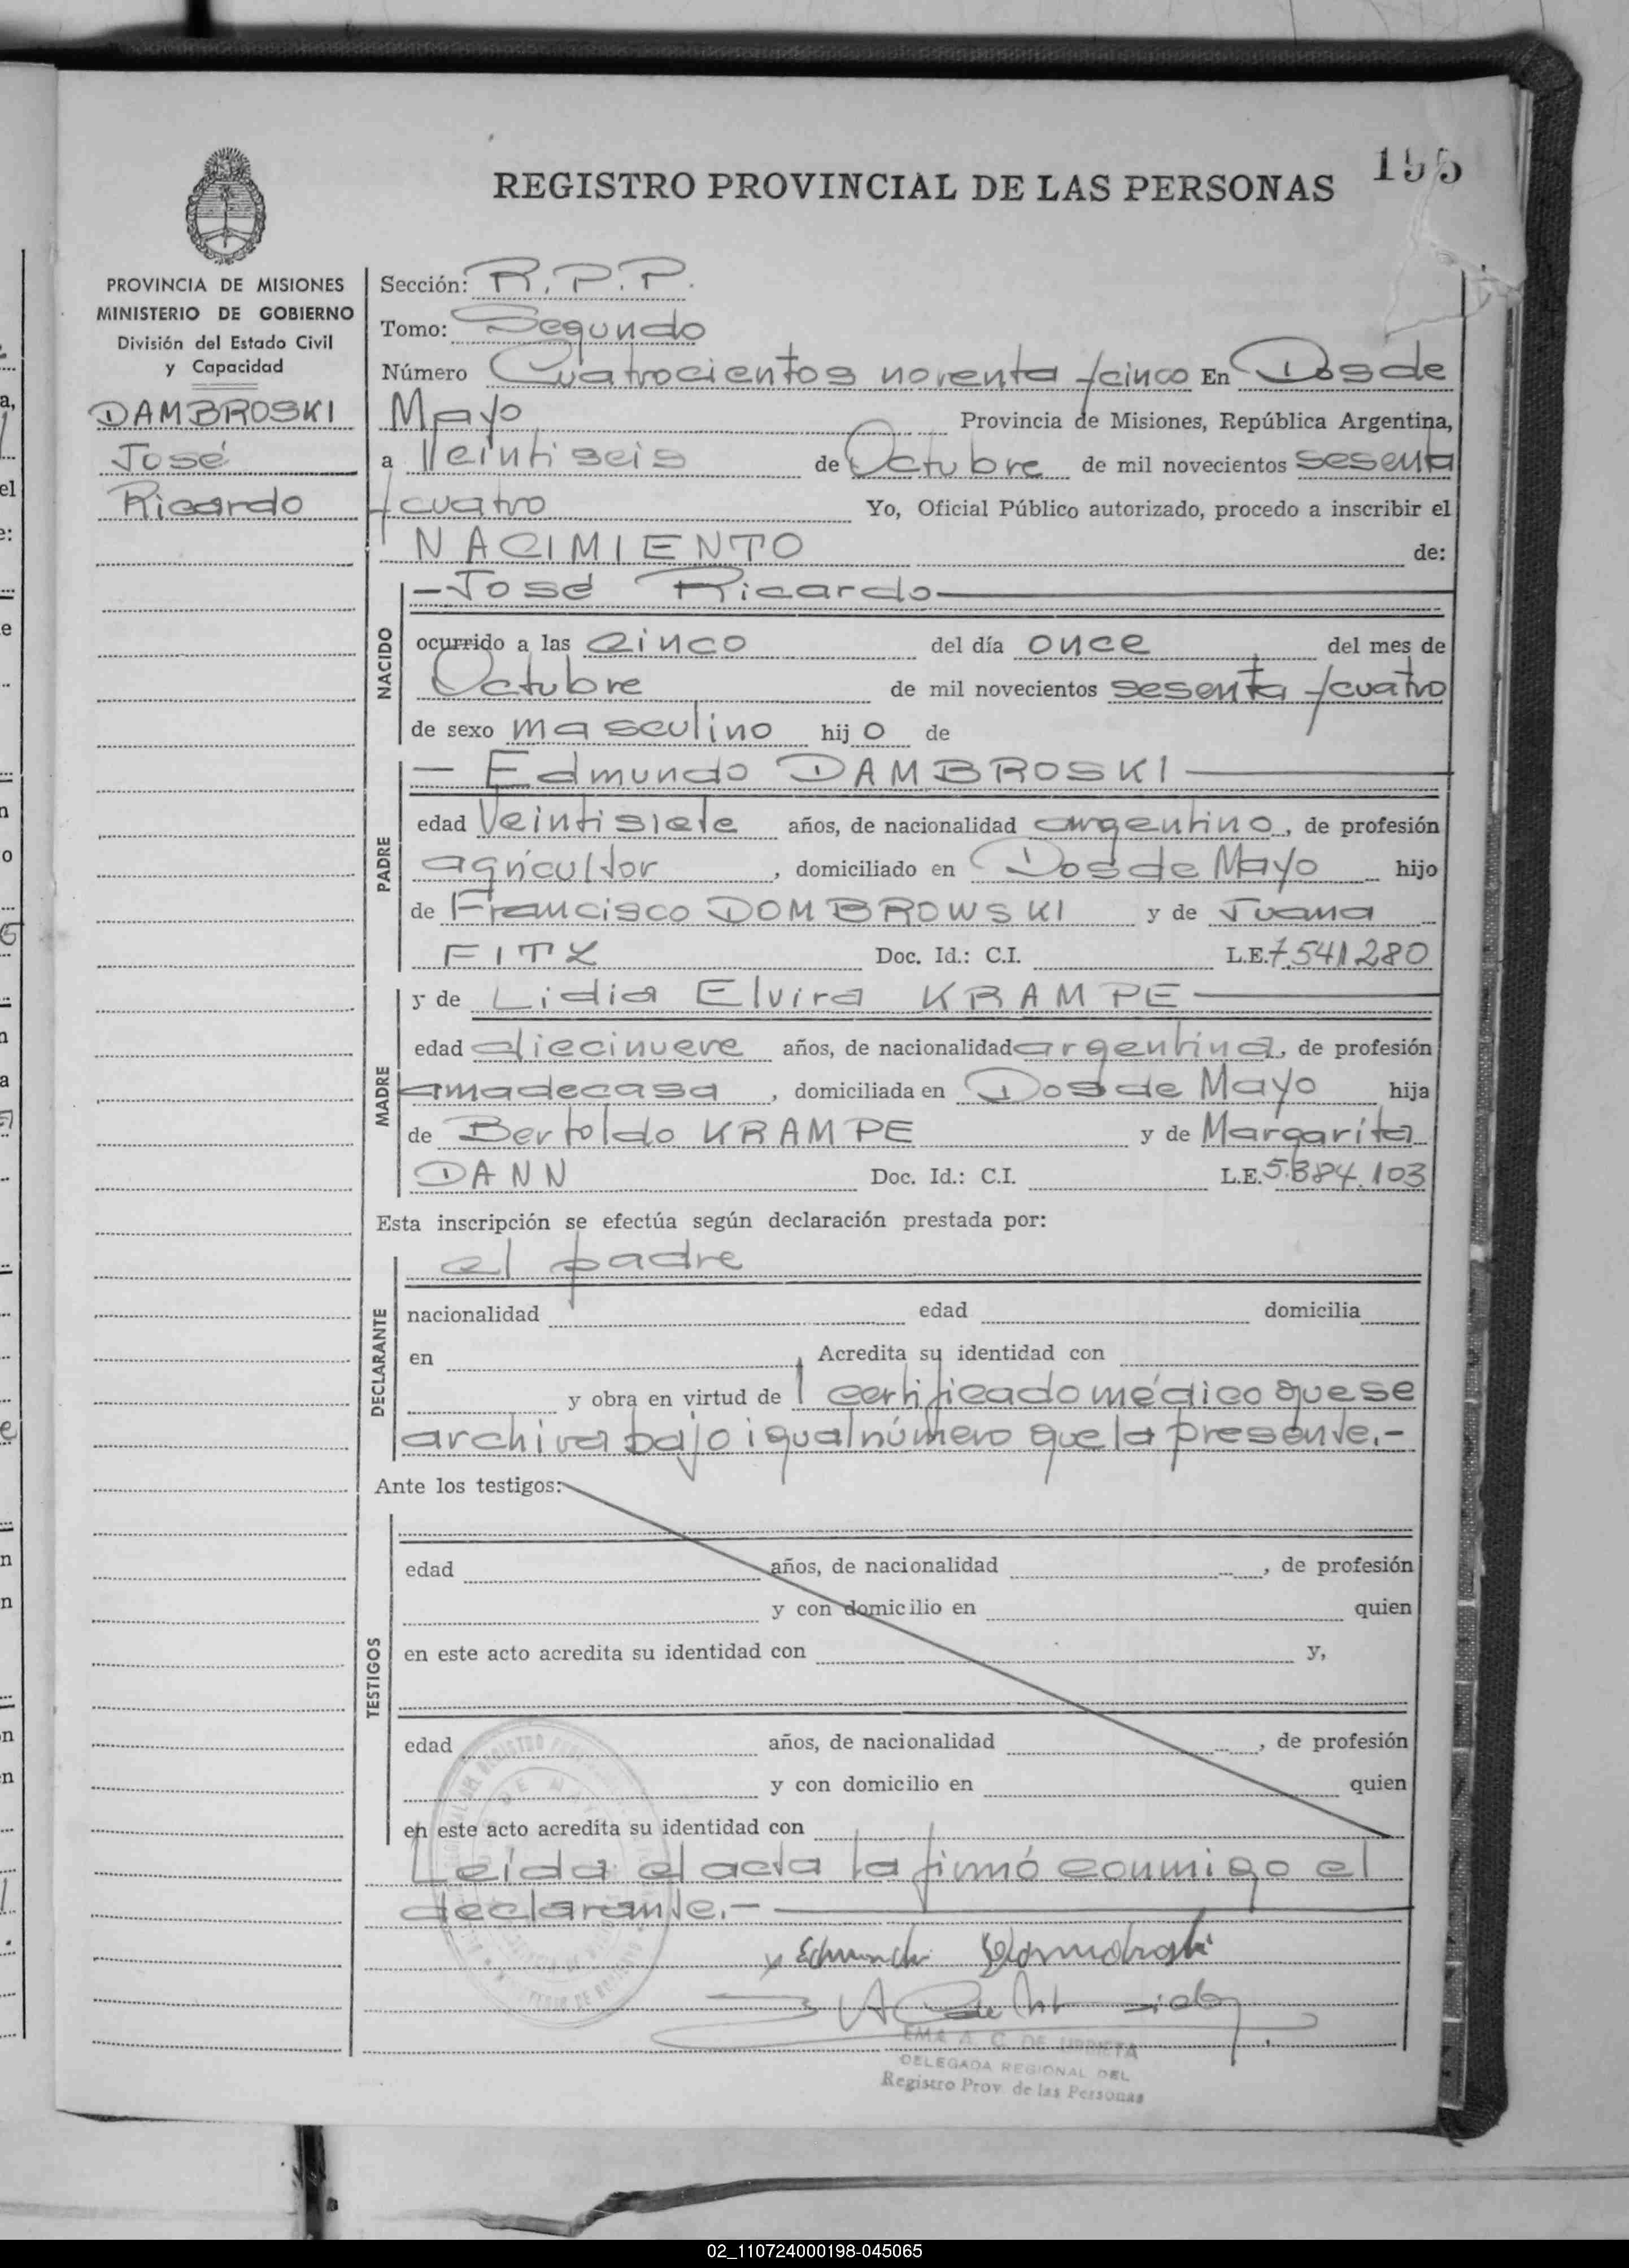 155
REGISTRO PROVINCIAL DE LAS PERSONAS
PROVINCIA DE MISIONES
MINISTERIO DE GOBIERNO
División del Estado Civil
y Capacidad
DAMBROSKI
José
Ricardo
Sección: R.P.P.
Tomo: Segundo
Número Cuatrocientos noventa y cinco En Dos de
Mayo Provincia de Misiones, República Argentina,
a Veintiseis de Octubre de mil novecientos sesenta
y cuatro Yo, Oficial Público autorizado, procedo a inscribir el
NACIMIENTO de:
NACIDO
— José Ricardo —
ocurrido a las cinco del día once del mes de
Octubre de mil novecientos sesenta y cuatro
de sexo masculino hijo de
PADRE
— Edmundo DAMBROSKI —
edad Veintisiete años, de nacionalidad argentino, de profesión
agricultor, domiciliado en Dos de Mayo hijo
de Francisco DOMBROWSKI y de Juana
FITZ Doc. Id.: C.I. L.E. 7.541.280
MADRE
y de Lidia Elvira KRAMPE —
edad diecinueve años, de nacionalidad argentina, de profesión
ama de casa, domiciliada en Dos de Mayo hija
de Bertoldo KRAMPE y de Margarita
DANN Doc. Id.: C.I. L.E. 5.884.103
Esta inscripción se efectúa según declaración prestada por:
DECLARANTE
el padre
nacionalidad edad domicilia
en Acredita su identidad con
y obra en virtud de 1 certificado médico que se
archiva bajo igual número que la presente.-
Ante los testigos:
TESTIGOS
edad años, de nacionalidad , de profesión
y con domicilio en quien
en este acto acredita su identidad con y,
edad años, de nacionalidad , de profesión
y con domicilio en quien
en este acto acredita su identidad con
Leída el acta la firmó conmigo el
declarante.-
EMA A. C. DE URRIETA
DELEGADA REGIONAL DEL
Registro Prov. de las Personas
02_110724000198-045065